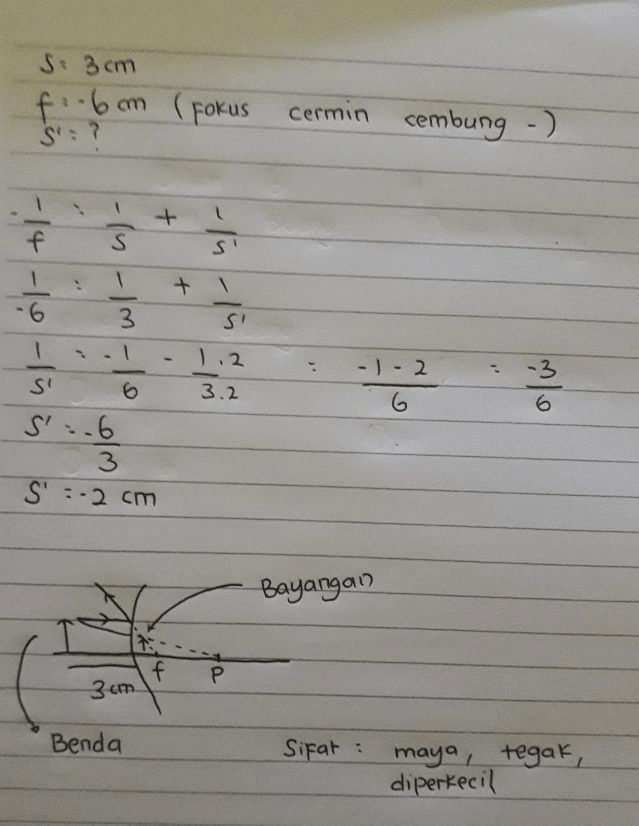 S = 3 cm
f = -6 cm (Fokus cermin cembung -)
S' = ?
-1/f = 1/S + 1/S'
1/-6 = 1/3 + 1/S'
1/S' = -1/6 - 1.2/3.2 = -1-2/6 = -3/6
S' = -6/3
S' = -2 cm
Bayangan
f
P
3 cm
Benda
Sifat : maya, tegak,
diperkecil